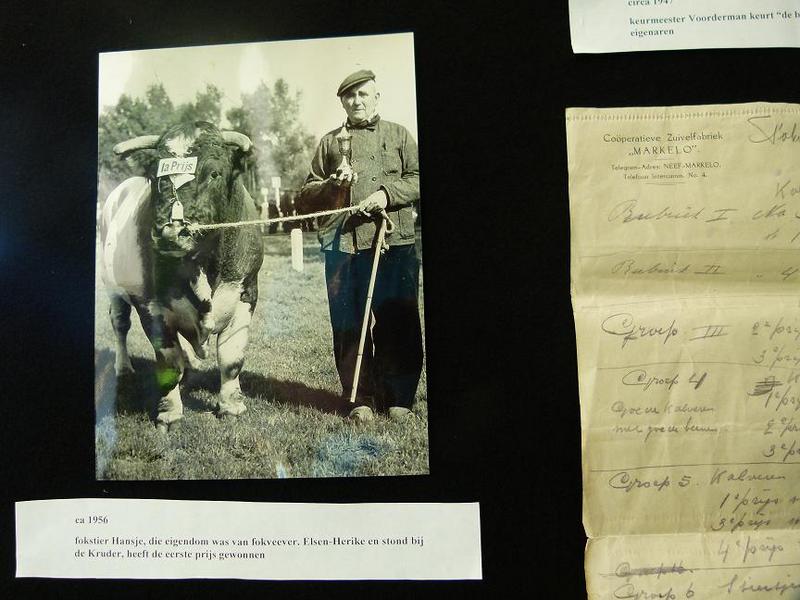 circa 1947
keurmeester Voorderman keurt "de b
eigenaren
1a Prijs
ca 1956
fokstier Hansje, die eigendom was van fokveever. Elsen-Herike en stond bij
de Kruder, heeft de eerste prijs gewonnen
Coöperatieve Zuivelfabriek
„MARKELO".
Telegram-Adres: NEEF-MARKELO.
Telefoon Intercomm. No. 4.
Rubriek I
Rubriek II
Groep III 2e prij
3e prij
Groep 4
1e prij
Goede Kalveren
met goede beenen 2e pr
3e pr
Groep 5 Kalveren
1e prijs
3e prijs
4e prijs
Groep 6 Stiertje